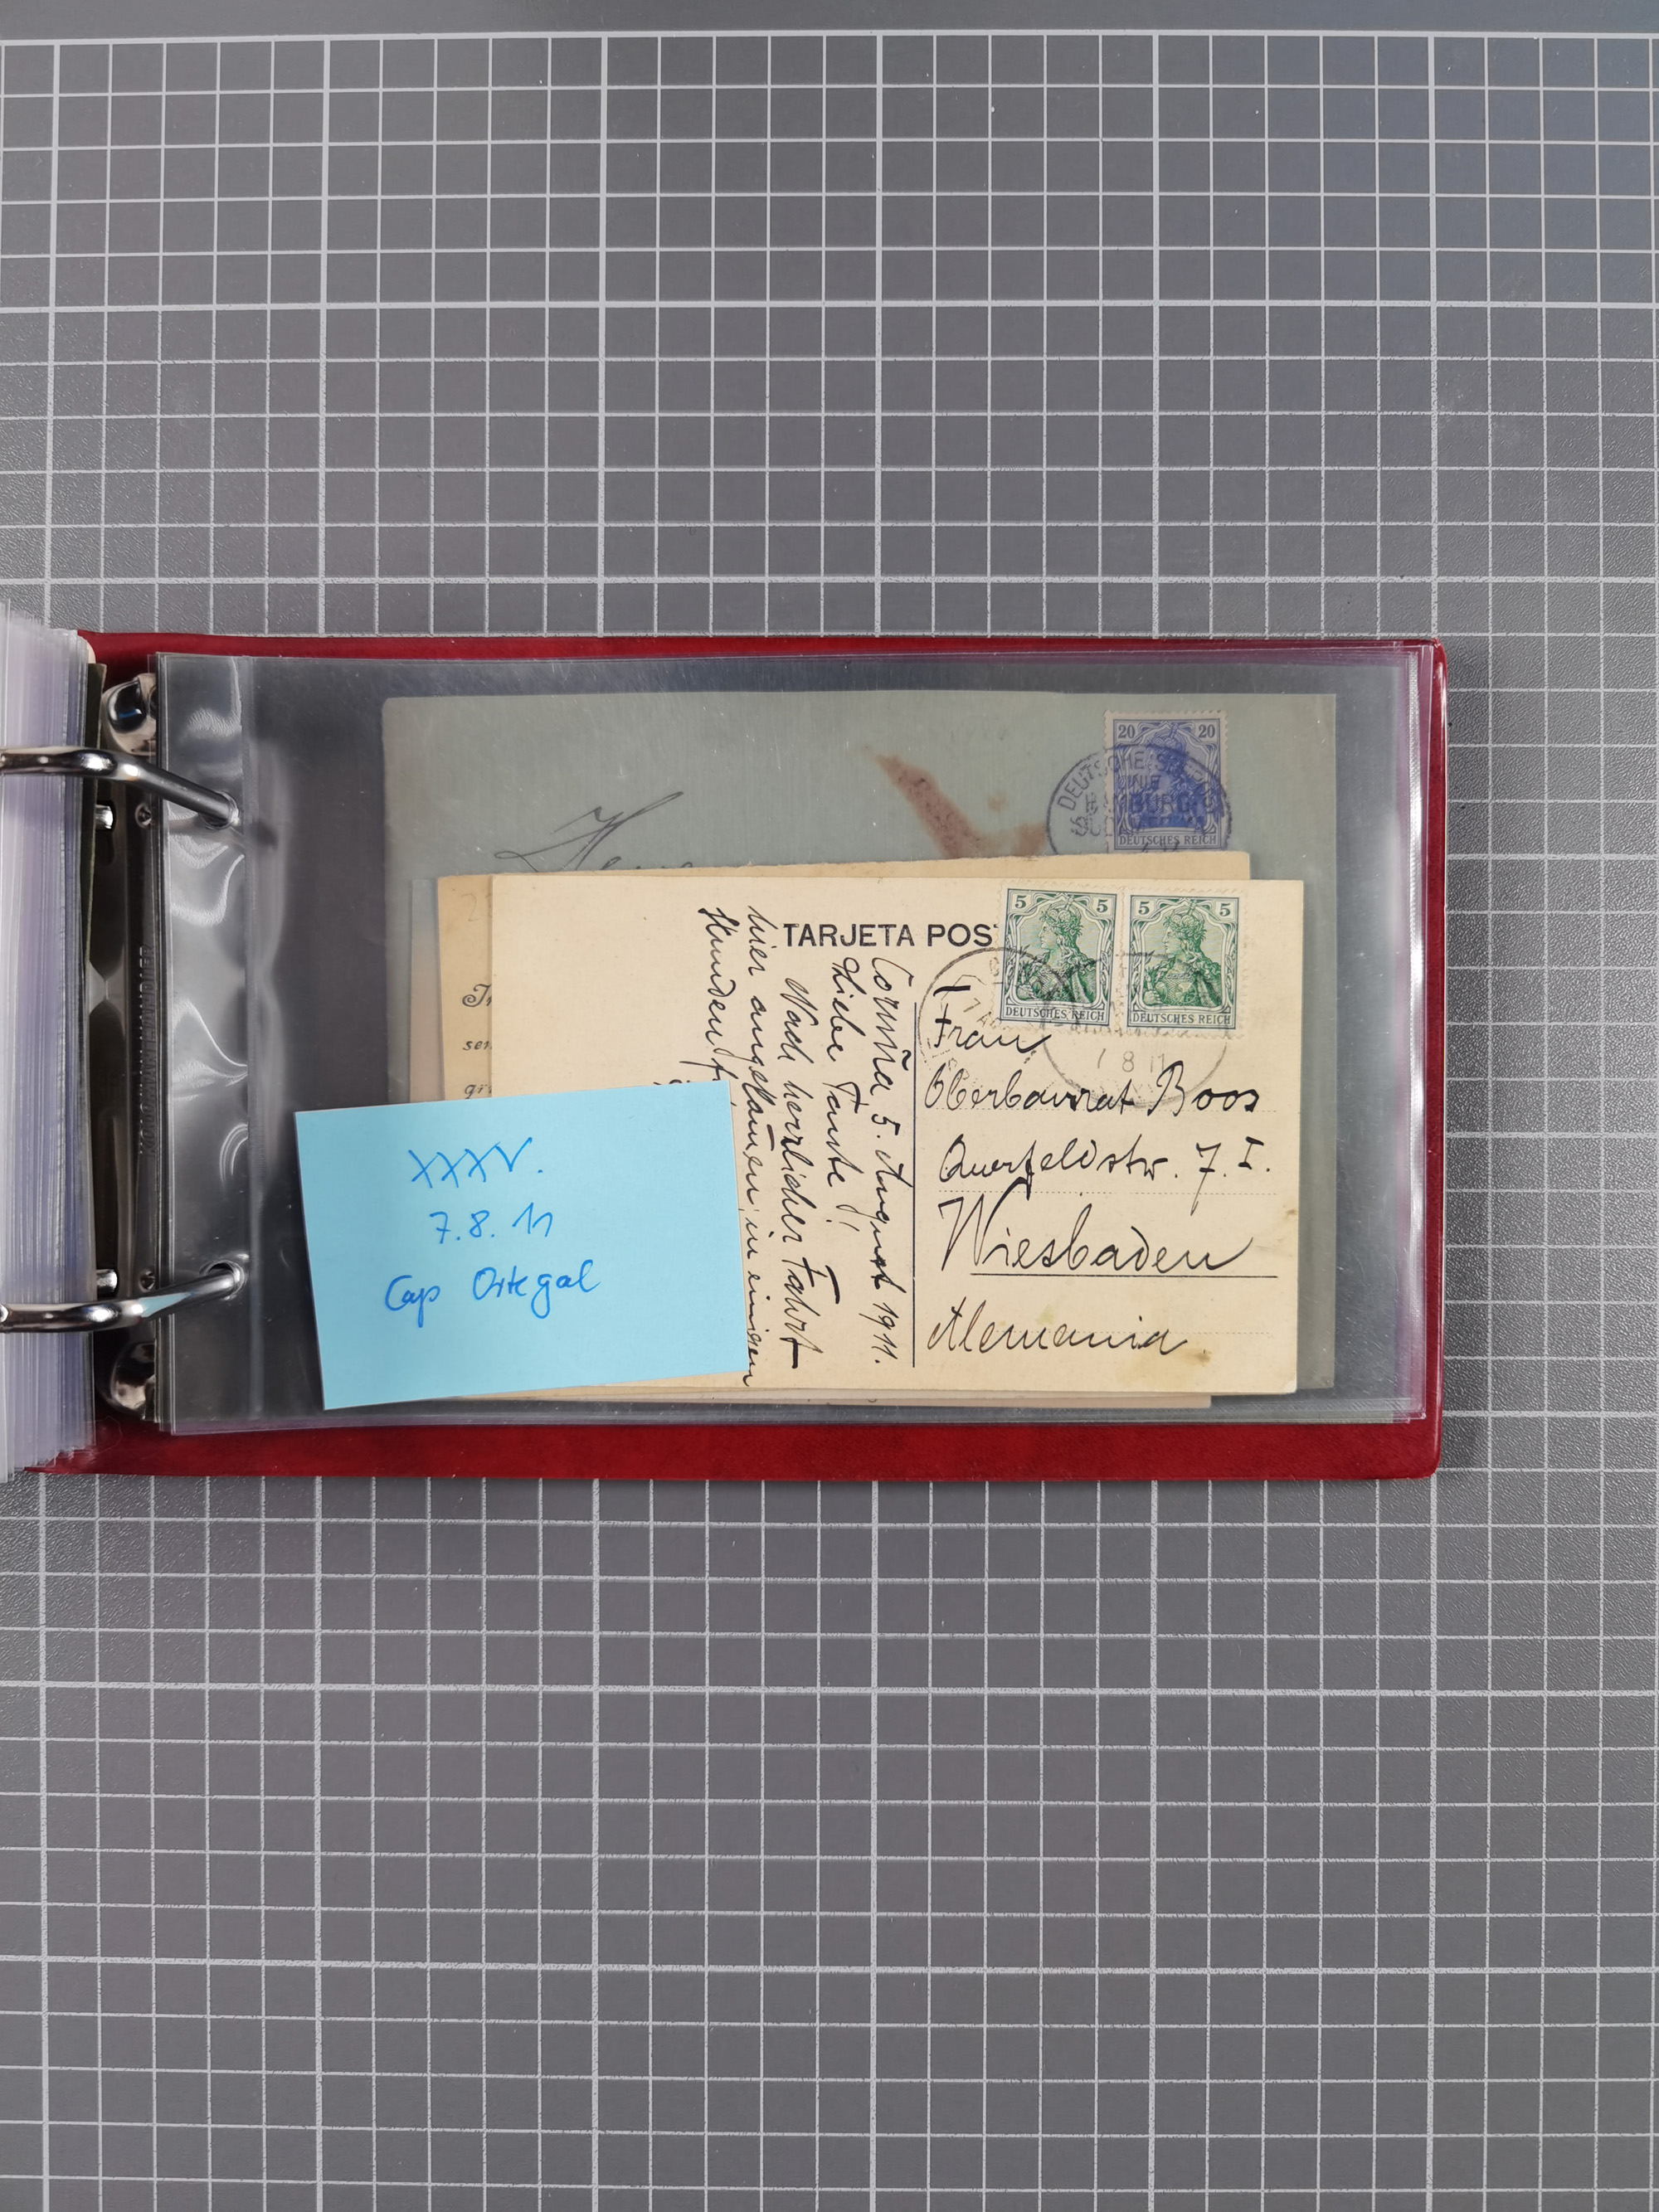 20 20
DEUTSCHE
LINIE
HAMBURG
DEUTSCHES REICH
TARJETA POS
5 5
DEUTSCHES REICH
5 5
DEUTSCHES REICH
7 8 11
Coruña 5. August 1911.
Liebe Tante!
Nach herrlicher Fahrt
hier angekommen in einigen
Stunden
Frau
Oberbaurat Boos
Querfeldstr. 7. I.
Wiesbaden
Alemania
XXXV.
7.8.11
Cap Ortegal